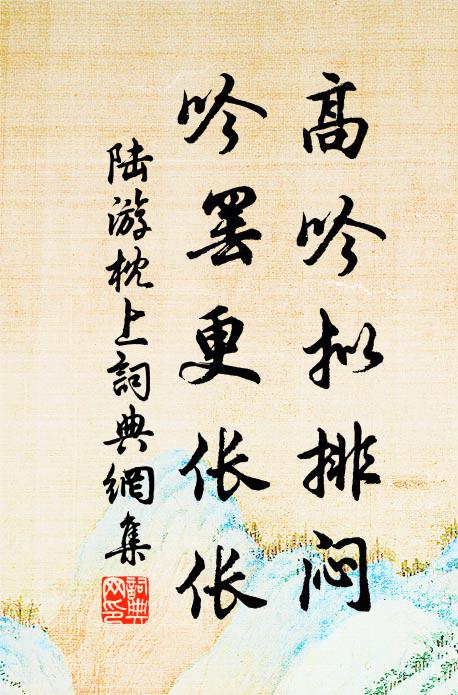 高吟拟排闷
吟罢更伥伥
陆游枕上詞典網集
詞典